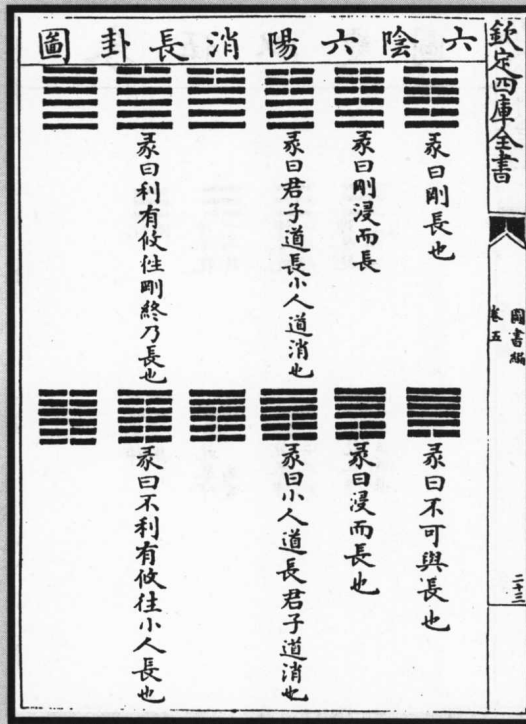 欽定四庫全書
圖書編
卷五
二十三
六陰六陽消長卦圖
彖曰剛長也
彖曰剛浸而長
彖曰君子道長小人道消也
彖曰利有攸往剛終乃長也
彖曰不可與長也
彖曰浸而長也
彖曰小人道長君子道消也
彖曰不利有攸往小人長也